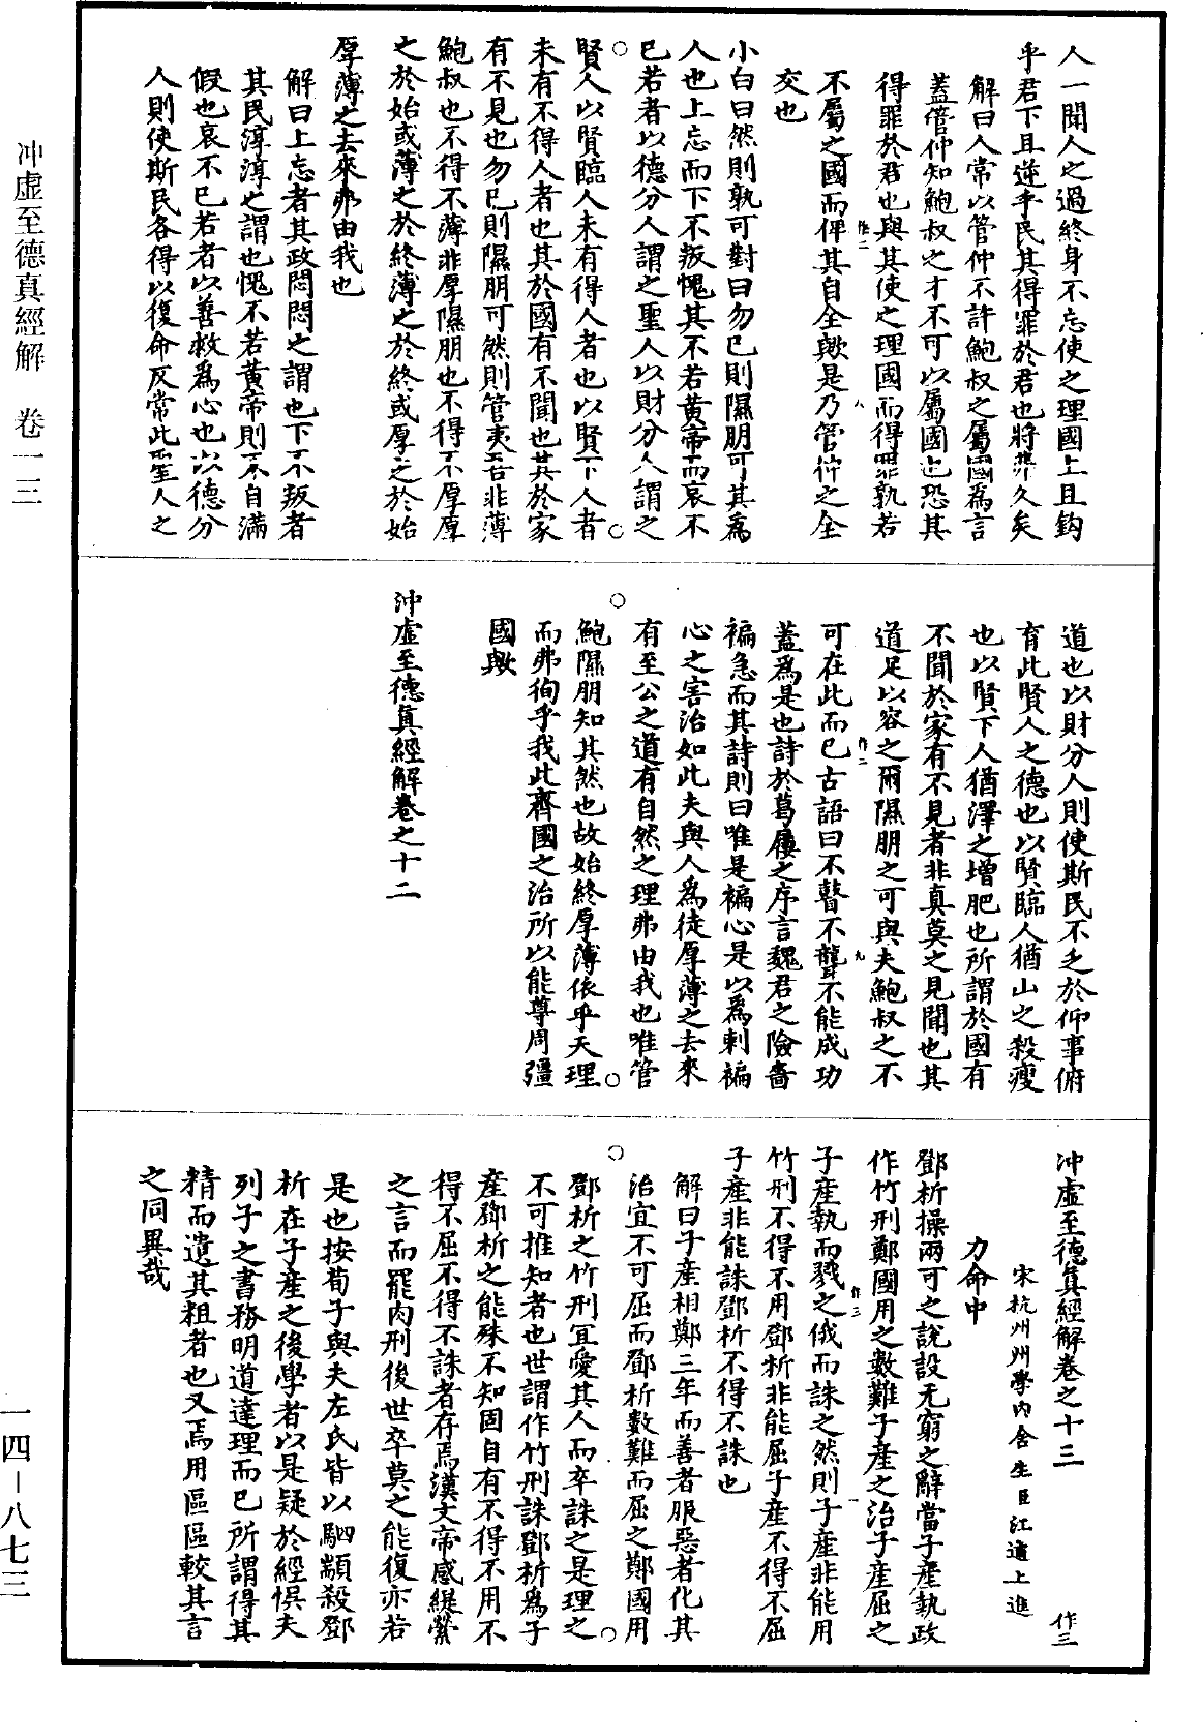 冲虛至德真經解　卷一三
人一聞人之過終身不忘使之理國上且鈎
乎君下且逆乎民其得罪於君也將弗久矣
解曰人常以管仲不許鮑叔之屬國為言
蓋管仲知鮑叔之才不可以屬國也恐其
得罪於君也與其使之理國而得罪孰若
不屬之國而俾其自全歟是乃管仲之全
交也
小白曰然則孰可對曰勿已則隰朋可其為
人也上忘而下不叛愧其不若黃帝而哀不
已若者以德分人謂之聖人以財分人謂之
賢人以賢臨人未有得人者也以賢下人者
未有不得人者也其於國有不聞也其於家
有不見也勿已則隰朋可然則管夷吾非薄
鮑叔也不得不薄非厚隰朋也不得不厚厚
之於始或薄之於終薄之於終或厚之於始
厚薄之去來弗由我也
解曰上忘者其政悶悶之謂也下不叛者
其民淳淳之謂也愧不若黃帝則不自滿
假也哀不已若者以善救為心也以德分
人則使斯民各得以復命反常此聖人之
道也以財分人則使斯民不乏於仰事俯
育此賢人之德也以賢臨人猶山之殺瘦
也以賢下人猶澤之增肥也所謂於國有
不聞於家有不見者非真莫之見聞也其
道足以容之爾隰朋之可與夫鮑叔之不
可在此而已古語曰不瞽不聾不能成功
蓋為是也詩於葛屨之序言魏君之險嗇
褊急而其詩則曰唯是褊心是以為刺褊
心之害治如此夫與人為徒厚薄之去來
有至公之道有自然之理弗由我也唯管
鮑隰朋知其然也故始終厚薄依乎天理
而弗徇乎我此齊國之治所以能尊周彊
國歟
沖虛至德真經解卷之十二
冲虛至德真經解卷之十三
作三
宋杭州州學內舍生臣江遹上進
力命中
鄧析操兩可之說設无窮之辭當子產執政
作竹刑鄭國用之數難子產之治子產屈之
子產執而戮之俄而誅之然則子產非能用
竹刑不得不用鄧析非能屈子產不得不屈
子產非能誅鄧析不得不誅也
解曰子產相鄭三年而善者服惡者化其
治宜不可屈而鄧析數難而屈之鄭國用
鄧析之竹刑宜愛其人而卒誅之是理之
不可推知者也世謂作竹刑誅鄧析為子
產鄧析之能殊不知固自有不得不用不
得不屈不得不誅者存焉漢文帝感緹縈
之言而罷肉刑後世卒莫之能復亦若
是也按荀子與夫左氏皆以駟顓殺鄧
析在子產之後學者以是疑於經惧夫
列子之書務明道達理而已所謂得其
精而遺其粗者也又焉用區區較其言
之同異哉
一四－八七三